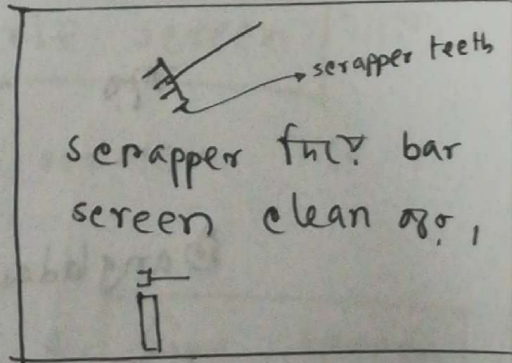 scrapper teeth
scrapper দিয়ে bar
screen clean করে,